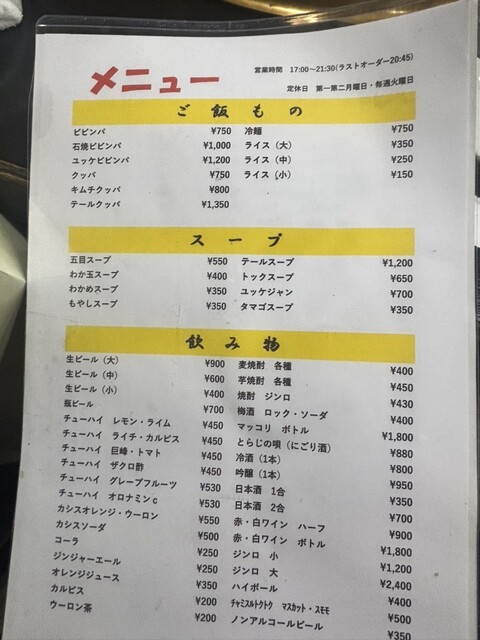 メニュー
営業時間 17:00～21:30(ラストオーダー20:45)
定休日 第一第二月曜日・毎週火曜日
ご飯もの
ビビンバ ¥750 冷麺 ¥750
石焼ビビンバ ¥1,000 ライス（大） ¥350
ユッケビビンバ ¥1,200 ライス（中） ¥250
クッパ ¥750 ライス（小） ¥150
キムチクッパ ¥800
テールクッパ ¥1,350
スープ
五目スープ ¥550 テールスープ ¥1,200
わか玉スープ ¥400 トックスープ ¥650
わかめスープ ¥350 ユッケジャン ¥700
もやしスープ ¥350 タマゴスープ ¥350
飲み物
生ビール（大） ¥900 麦焼酎 各種 ¥400
生ビール（中） ¥600 芋焼酎 各種 ¥450
生ビール（小） ¥400 焼酎 ジンロ ¥430
瓶ビール ¥700 梅酒 ロック・ソーダ ¥400
チューハイ レモン・ライム ¥450 マッコリ ボトル ¥1,800
チューハイ ライチ・カルピス ¥450 とらじの唄（にごり酒） ¥880
チューハイ 巨峰・トマト ¥450 冷酒（1本） ¥800
チューハイ ザクロ酢 ¥450 吟醸（1本） ¥950
チューハイ グレープフルーツ ¥530 日本酒 1合 ¥350
チューハイ オロナミンｃ ¥530 日本酒 2合 ¥700
カシスオレンジ・ウーロン ¥550 赤・白ワイン ハーフ ¥900
カシスソーダ ¥500 赤・白ワイン ボトル ¥1,800
コーラ ¥250 ジンロ 小 ¥1,200
ジンジャーエール ¥250 ジンロ 大 ¥2,400
オレンジジュース ¥350 ハイボール ¥400
カルピス ¥200 ﾁｬﾐｽﾙﾄｸﾄｸ ﾏｽｶｯﾄ・ｽﾓﾓ ¥500
ウーロン茶 ¥200 ノンアルコールビール ¥350